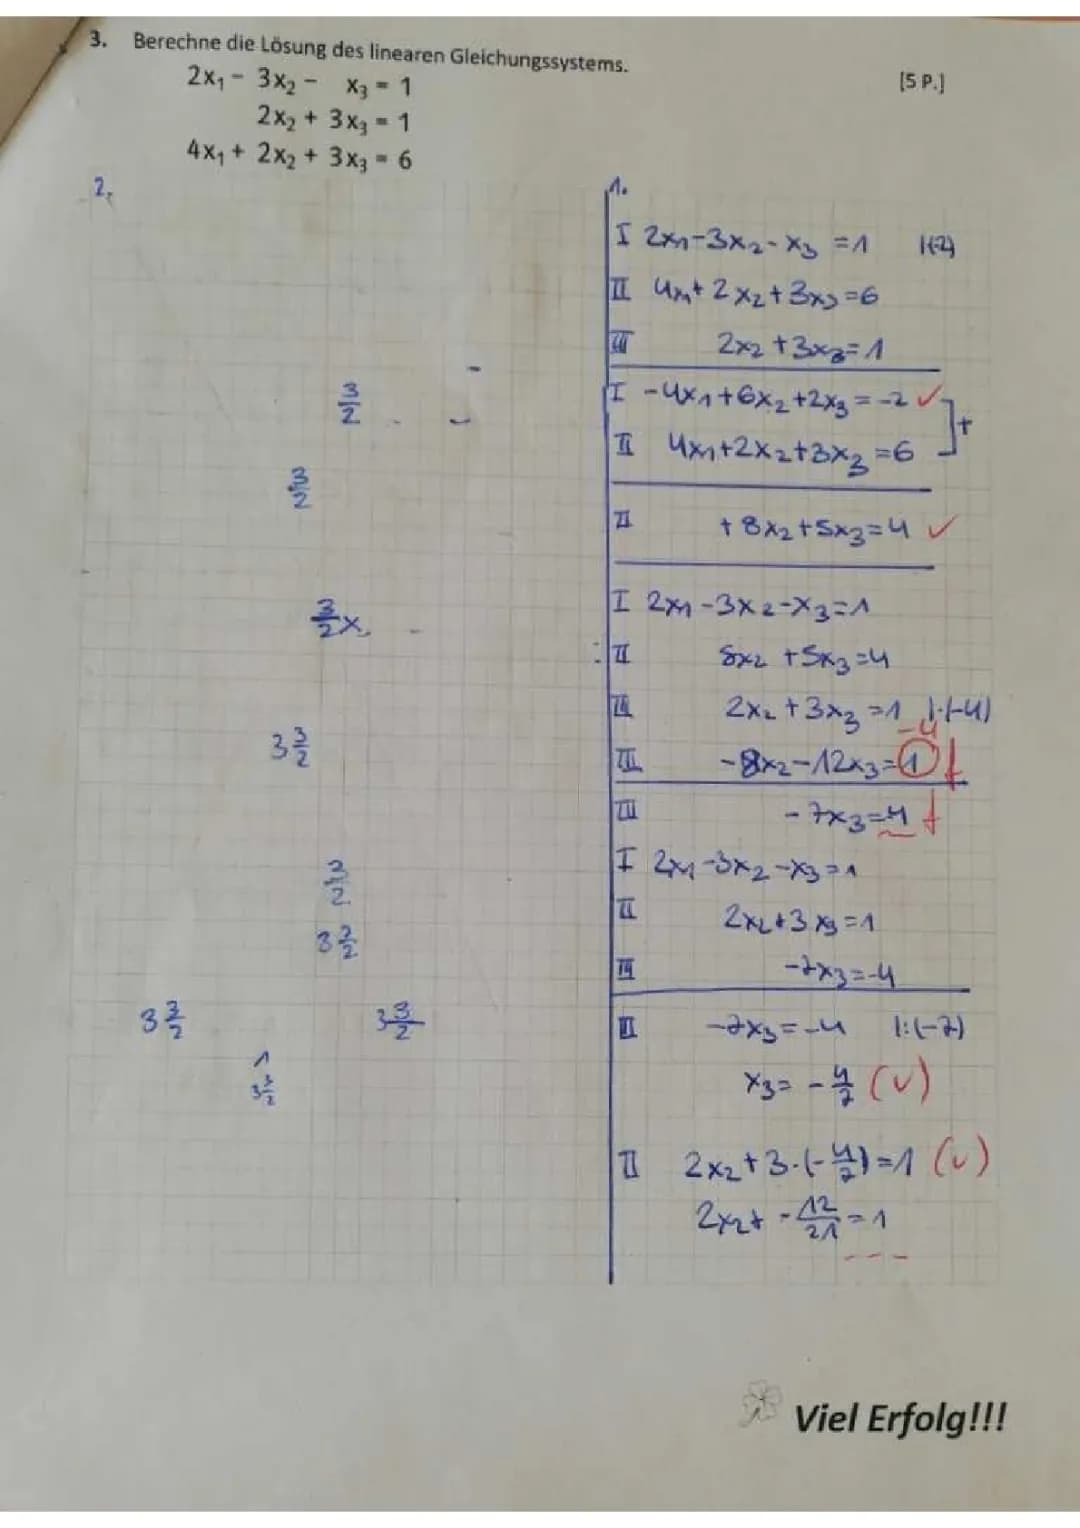 3. Berechne die Lösung des linearen Gleichungssystems.
[5 P.]
2x₁ - 3x₂ - x₃ = 1
2x₂ + 3x₃ = 1
4x₁ + 2x₂ + 3x₃ = 6
2.
3/2
3/2
3/2 x
3 3/2
3/2
3 3/2
3 3/2 3 3/2
1
3 3/2
1.
I 2x₁-3x₂-x₃ =1 |(-2)
II 4x₁+2x₂+3x₃=6
III 2x₂+3x₃=1
I -4x₁+6x₂+2x₃=-2 ✓ ]+
II 4x₁+2x₂+3x₃=6
II +8x₂+5x₃=4 ✓
I 2x₁-3x₂-x₃=1
II 8x₂+5x₃=4
III 2x₂+3x₃=1 |·(-4)
-4
III -8x₂-12x₃=1 f
III -7x₃=4 f
I 2x₁-3x₂-x₃=1
II 2x₂+3x₃=1
III -7x₃=-4
III -7x₃=-4 |:(-7)
x₃= -4/7 (✓)
II 2x₂+3·(-4/7)=1 (✓)
2x₂+ -12/21=1
Viel Erfolg!!!